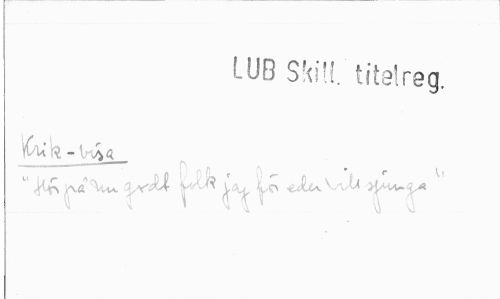 LUB Skill. titelreg.
Krik-visa
"Hör på nu godt folk jag för eder vill sjunga"